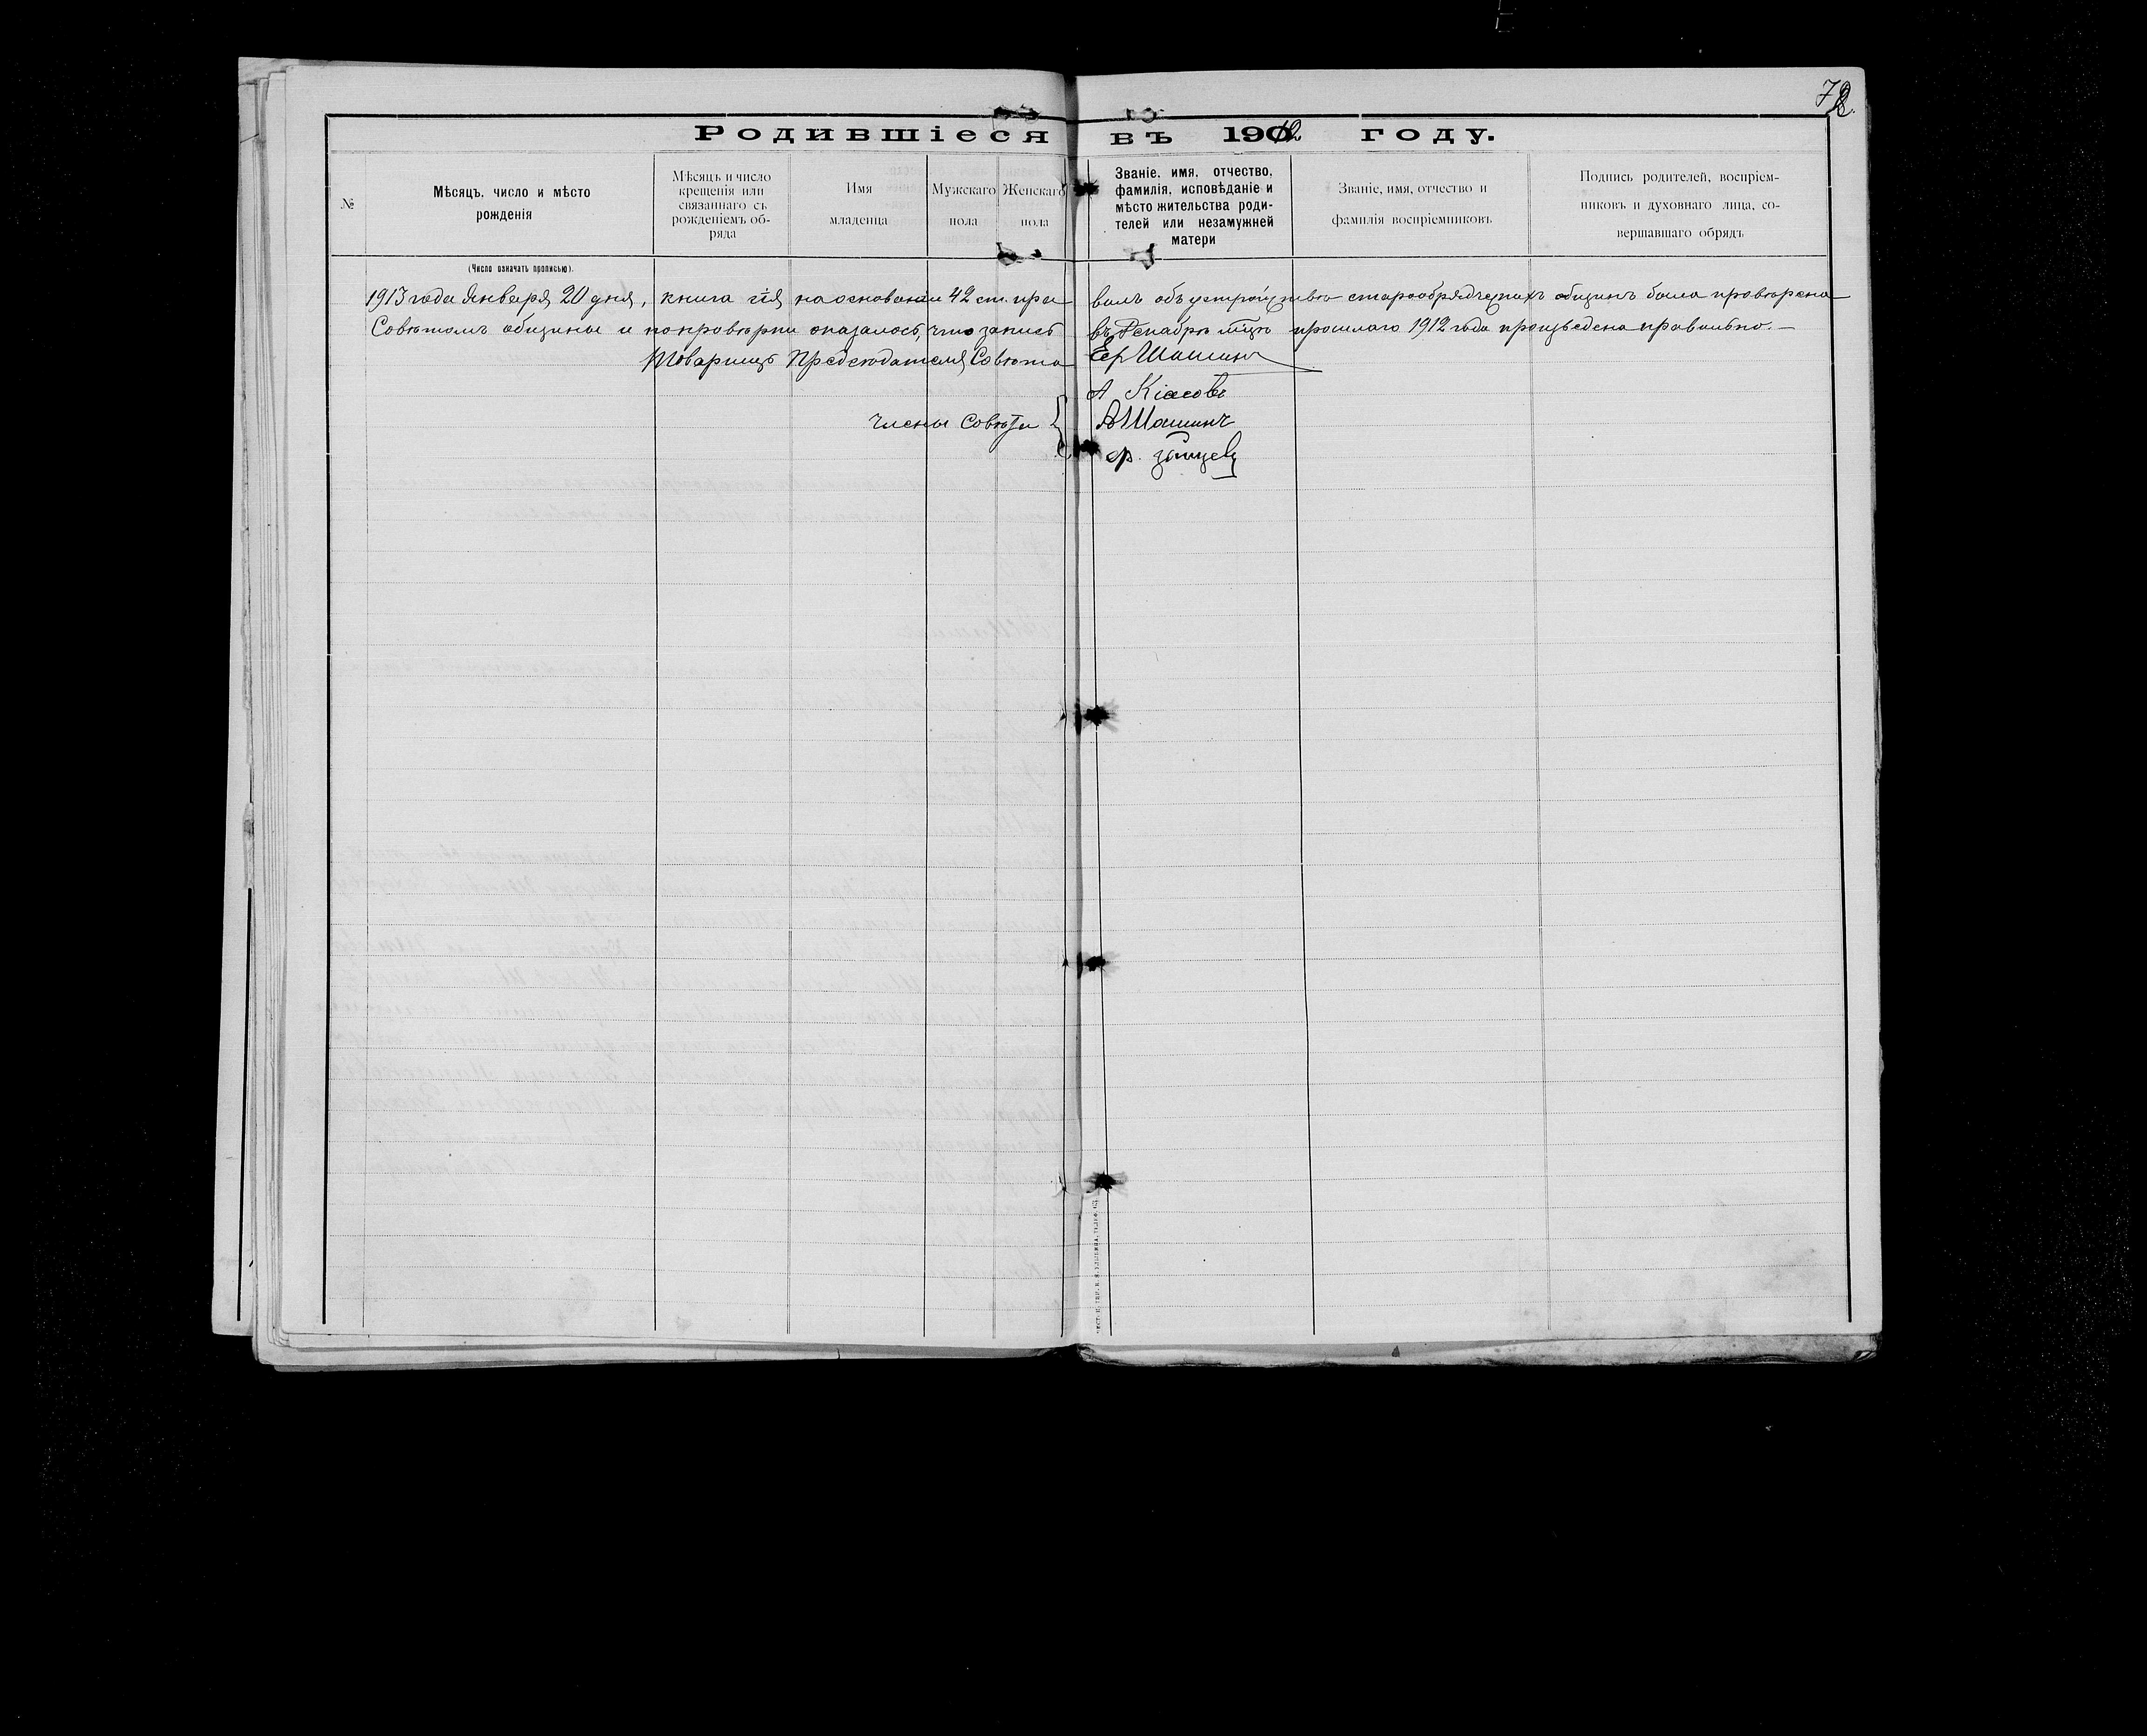 72.
Родившіеся въ 1912 году.
№
Мѣсяцъ, число и мѣсто
рожденія
Мѣсяцъ и число
крещенія или
связаннаго съ
рожденіемъ об-
ряда
Имя
младенца
Мужскаго
пола
Женскаго
пола
Званіе, имя, отчество,
фамилія, исповѣданіе и
мѣсто жительства роди-
телей или незамужней
матери
Званіе, имя, отчество и
фамилія воспріемниковъ
Подпись родителей, воспріем-
никовъ и духовнаго лица, со-
вершавшаго обрядъ
(Число означать прописью).
1913 года Января 20 дня, книга сія на основаніи 42 ст. пра вилъ объ устройствѣ старообрядческихъ общинъ была провѣрена
Совѣтомъ общины и по провѣрки оказалось, что запись въ Декабрѣ м-цѣ прошлаго 1912 года произведена правильно.—
Товарищъ Предсѣдателя Совѣта Ер Шашинъ
А Кіасовъ
Члены Совѣта { А Шашинъ
ф. Зайцевъ